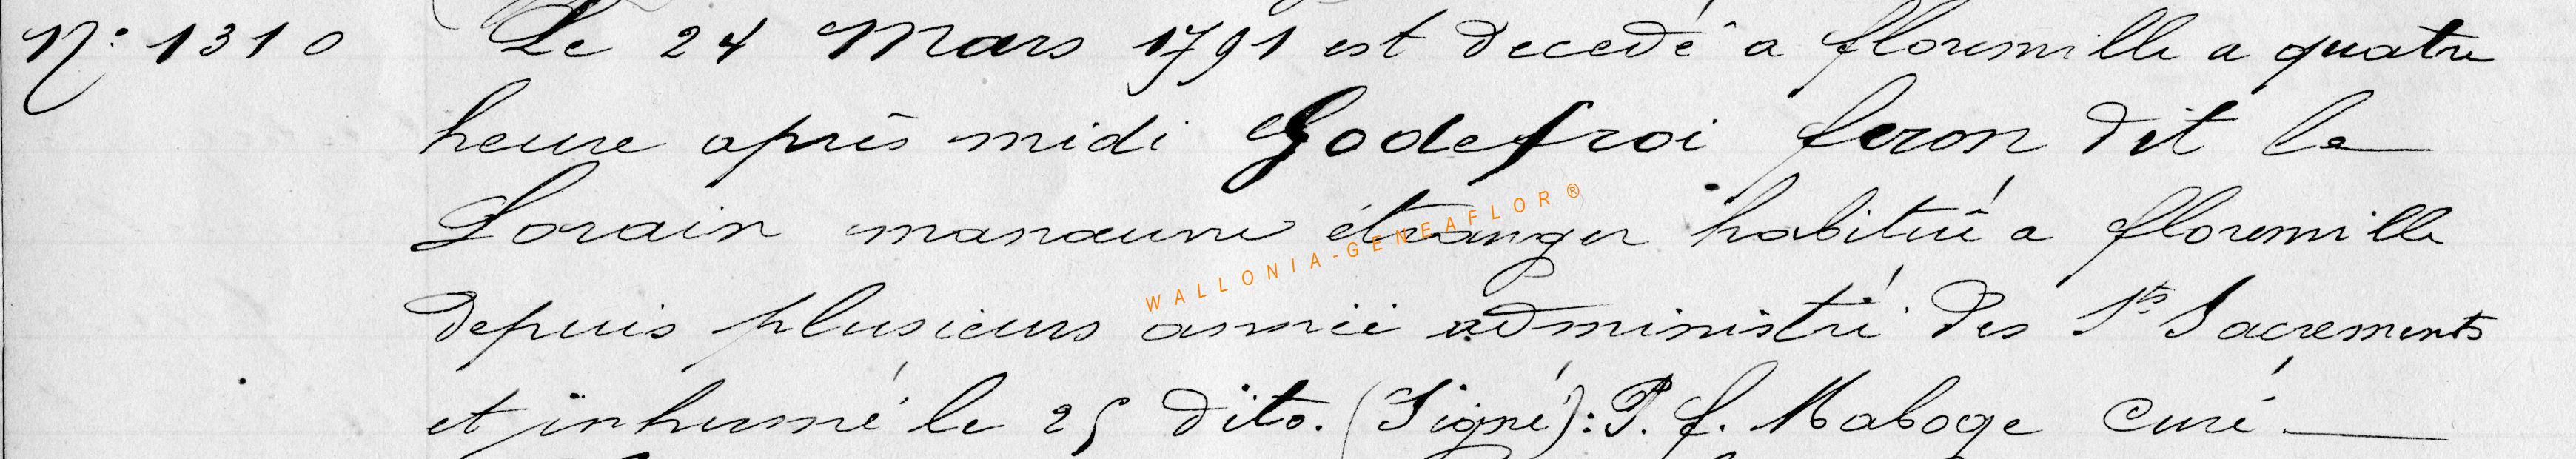 N: 1310 Le 24 Mars 1791 est decedé a florenville a quatre
heure après midi Godefroi feron dit le
Lorain manoeuvre étranger habitué a florenville
depuis plusieurs année administré des Sts Sacrements
et inhumé le 25 dito. (Signé): P. f. Maboge Curé
WALLONIA-GENEAFLOR®